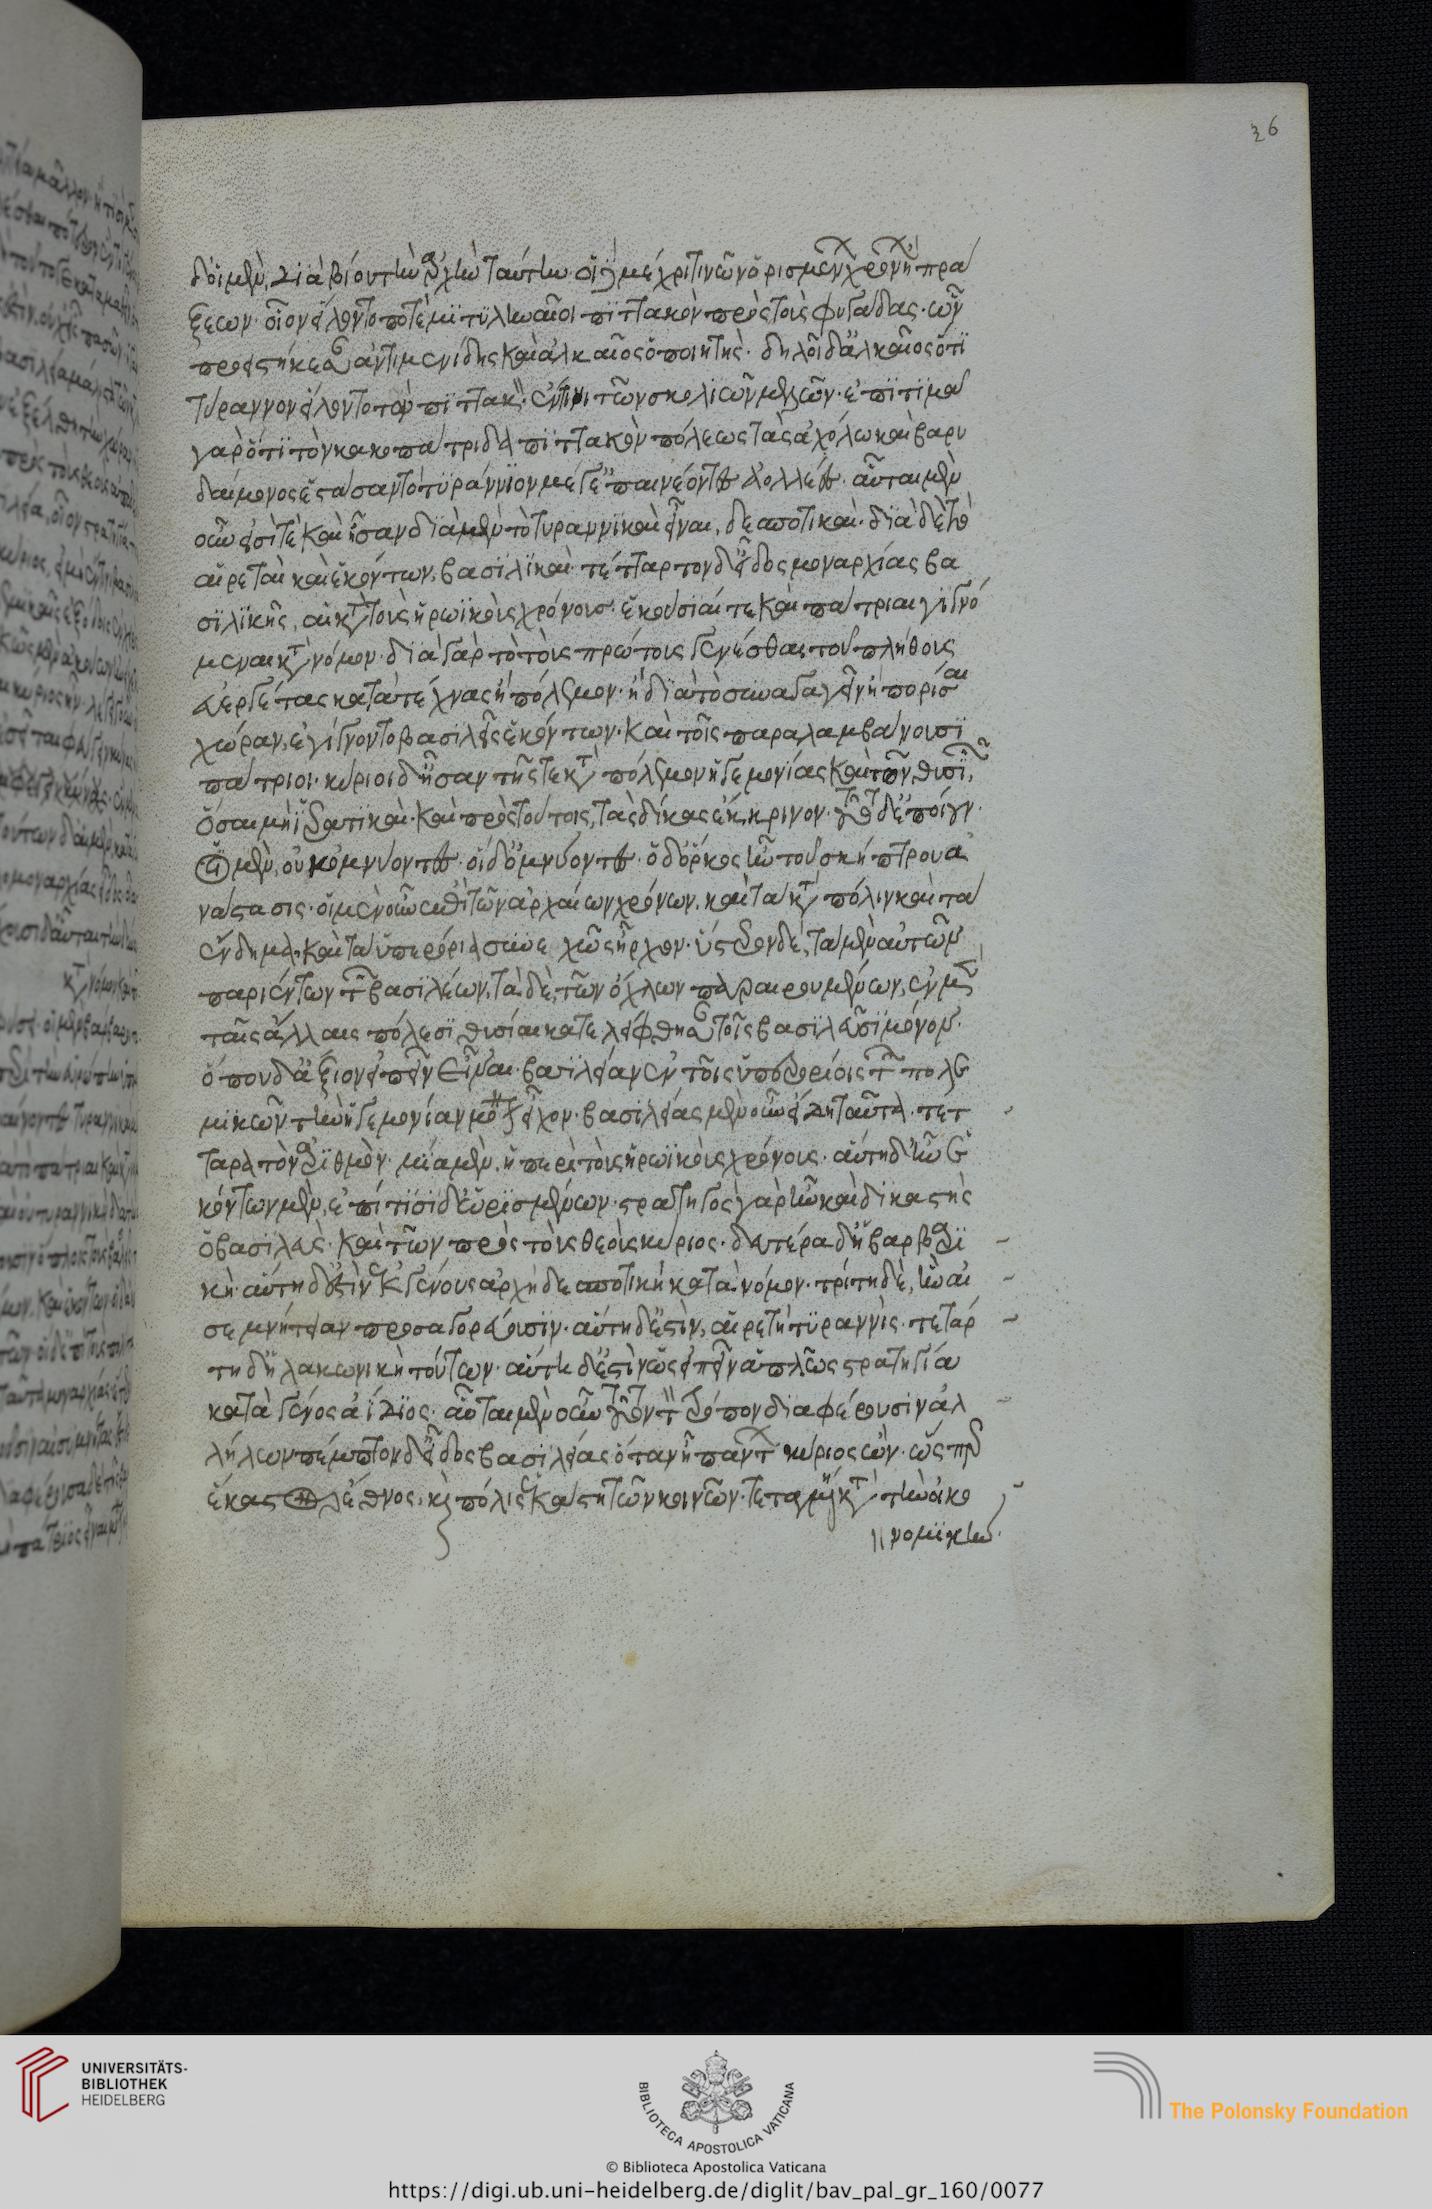 36
δ' οἱ μὲν, διὰ βίου τὴν ἀρχὴν ταύτην· οἱ δὲ μέχρι τινῶν ὡρισμένων χρόνων ἢ πρά
ξεων· οἷον εἵλοντό ποτε μιτυληναῖοι πιττακὸν πρὸς τοὺς φυγάδας· ὧν
προεστήκεσαν ἀντιμενίδης καὶ ἀλκαῖος ὁ ποιητής· δηλοῖ δ' ἀλκαῖος ὅτι
τύραννον εἵλοντο τὸν πιττακόν· ἔν τινι τῶν σκολιῶν μελῶν· ἐπιτιμᾶ
γὰρ ὅτι τὸν κακοπάτριδα πιττακὸν πόλεως τᾶς ἀχόλω καὶ βαρυ
δαίμονος ἐστάσαντο τύραννον μέγ' ἐπαινέοντες ἀολλέες· αὗται μὲν
οὖν εἰσί τε καὶ ἦσαν διὰ μὲν τὸ τυραννικαὶ εἶναι, δεσποτικαί· διὰ δὲ τὸ
αἱρεταὶ καὶ ἑκόντων, βασιλικαί· τέταρτον δ' εἶδος μοναρχίας βα
σιλικῆς, αἱ κατὰ τοὺς ἡρωϊκοὺς χρόνους ἑκούσιαί τε καὶ πάτριαι γιγνό
μεναι κατὰ νόμον· διὰ γὰρ τὸ τοὺς πρώτους γενέσθαι τοῦ πλήθους
εὐεργέτας κατὰ τέχνας ἢ πόλεμον· ἢ διὰ τὸ συναγαγεῖν ἢ πορίσαι
χώραν, ἐγίγνοντο βασιλεῖς ἑκόντων· καὶ τοῖς παραλαμβάνουσι
πάτριοι· κύριοι δ' ἦσαν τῆς τε κατὰ πόλεμον ἡγεμονίας καὶ τῶν θυσιῶν,
ὅσαι μὴ ἱερατικαί· καὶ πρὸς τούτοις, τὰς δίκας ἔκρινον· τοῦτο δ' ἐποίουν
οἱ μὲν, οὐκ ὀμνύοντες· οἱ δ' ὀμνύοντες· ὁ δ' ὅρκος ἦν τοῦ σκήπτρου ἐπα
νάτασις· οἱ μὲν οὖν ἐπὶ τῶν ἀρχαίων χρόνων, καὶ τὰ κατὰ πόλιν καὶ τὰ
ἔνδημα· καὶ τὰ ὑπερόρια συνεχῶς ἦρχον· ὕστερον δὲ, τὰ μὲν αὐτῶν
παριέντων τῶν βασιλέων, τὰ δὲ, τῶν ὄχλων παραιρουμένων, ἐν μὲν
ταῖς ἄλλαις πόλεσι θυσίαι κατελείφθησαν τοῖς βασιλεῦσι μόνον·
ὅπου δ' ἄξιον εἰπεῖν εἶναι βασιλείαν ἐν τοῖς ὑπερορίοις τῶν πολε
μικῶν τὴν ἡγεμονίαν μόνον εἶχον· βασιλείας μὲν οὖν εἴδη ταῦτα· τέτ
ταρα τὸν ἀριθμόν· μία μὲν, ἡ περὶ τοὺς ἡρωϊκοὺς χρόνους· αὕτη δ' ἦν ἑ
κόντων μὲν, ἐπί τισι δ' ὡρισμένων· στρατηγὸς γὰρ ἦν καὶ δικαστὴς
ὁ βασιλεύς· καὶ τῶν πρὸς τοὺς θεοὺς κύριος· δευτέρα δ' ἡ βαρβαρι
κή· αὕτη δ' ἐστὶν ἐκ γένους ἀρχὴ δεσποτικὴ κατὰ νόμον· τρίτη δὲ, ἣν αἰ
συμνητείαν προσαγορεύουσιν· αὕτη δ' ἐστὶν, αἱρετὴ τυραννίς· τετάρ
τη δ' ἡ λακωνικὴ τούτων· αὕτη δ' ἐστὶν ὡς εἰπεῖν ἁπλῶς στρατηγία
κατὰ γένος ἀΐδιος· αὗται μὲν οὖν τοῦτον τὸν τρόπον διαφέρουσιν ἀλ
λήλων· πέμπτον δ' εἶδος βασιλείας ὅταν ἦ πάντων κύριος ὤν· ὥσπερ
ἕκαστον ἔθνος· καὶ πόλις ἑκάστη τῶν κοινῶν· τεταγμένη κατὰ τὴν οἰκο
νομικήν·
UNIVERSITÄTS-
BIBLIOTHEK
HEIDELBERG
BIBLIOTECA APOSTOLICA VATICANA
The Polonsky Foundation
© Biblioteca Apostolica Vaticana
https://digi.ub.uni-heidelberg.de/diglit/bav_pal_gr_160/0077